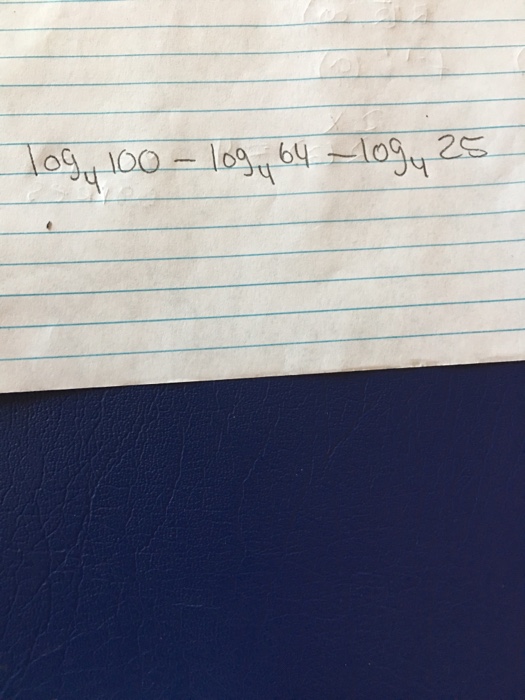 log₄ 100 − log₄ 64 − log₄ 25